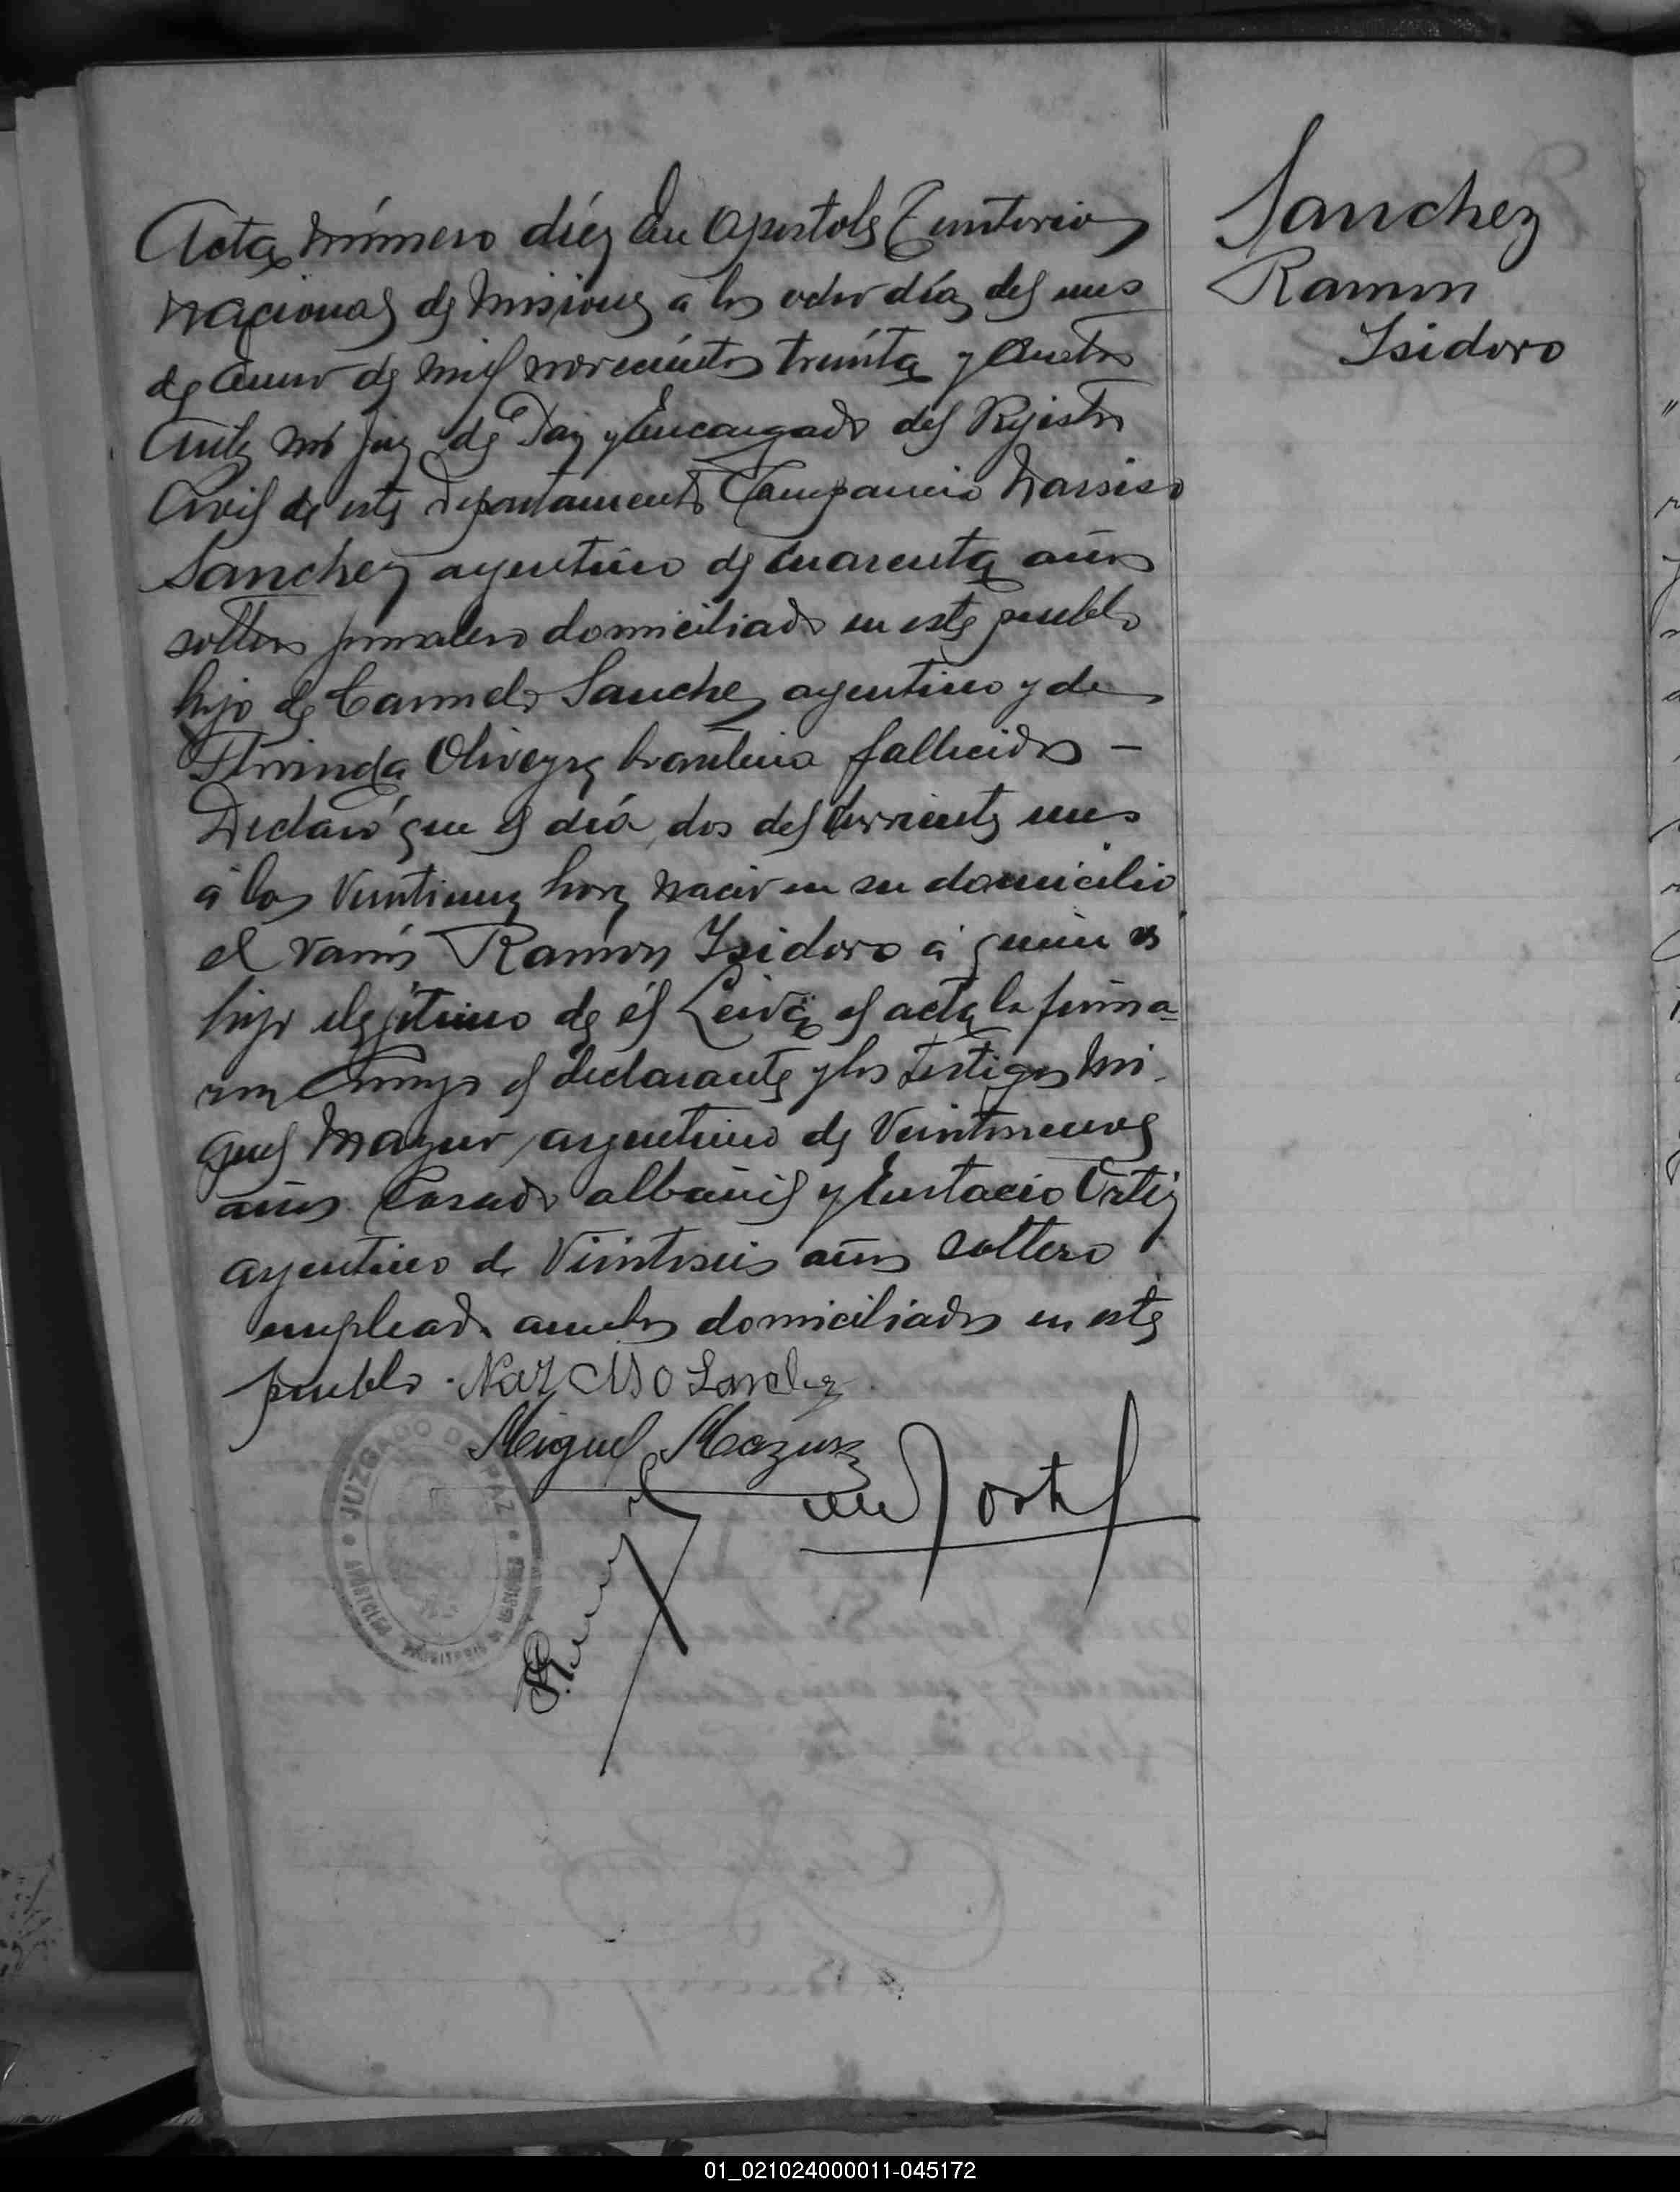 Acta número diéz En Apostoles Territorio
Nacional de Misiones a los ocho días del mes
de Enero de mil novecientos treinta y Cuatro
Ante mi Juez de Paz y Encargado del Rejistro
Civil de este Departamento Comparecio Narsiso
Sanchez argentino de Cuarenta años
soltero jornalero domiciliado en este pueblo
hijo de Carmelo Sanchez argentino y de
Florinda Oliveyra brasilera fallecidos –
Declaró que el día dos del Corriente mes
á las Veintiuna hora nació en su domicilio
el varón Ramón Isidoro á quien es
hijo ilejitimo de él Leída el acta la firma-
ron Conmigo el declarante y los testigos Mi-
guel Mazur argentino de Veintinueve
años Casado albañil y Eustacio Ortiz
argentino de Veintiseis años soltero
empleado ambos domiciliados en este
pueblo. Narciso Sanchez
Miguel Mazur
JUZGADO DE PAZ
APOSTOLES TERRITORIO DE MISIONES
Sanchez
Ramon
Isidoro
01_021024000011-045172